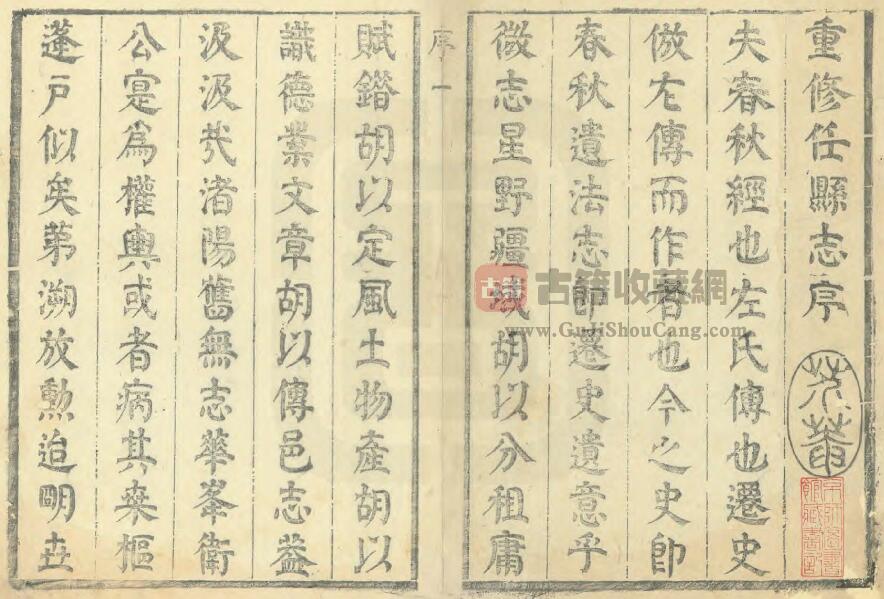 重修任縣志序
夫春秋經也左氏傳也遷史
倣左傳而作者也今之史即
春秋遺法志即遷史遺意乎
微志星野疆域胡以分租庸
序 一
賦鐕胡以定風土物產胡以
識德業文章胡以傳邑志益
汲汲㢤渚陽舊無志華峯衛
公寔為權輿或者病其桊樞
蓬戸似矣苐溯放勲迨明卋
古籍 古籍收藏網
www.GujiShouCang.com